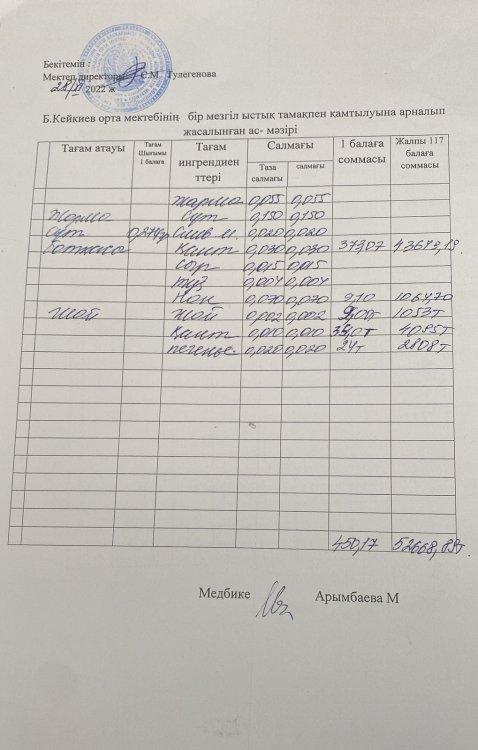 Бекітемін :
Мектеп директоры С.М Тулегенова
28/XI 2022 ж
Б.Кейкиев орта мектебінің бір мезгіл ыстық тамақпен қамтылуына арналып
жасалынған ас- мәзірі
Тағам атауы Тағам Шығымы 1 балаға Тағам ингрендиен ттері Салмағы 1 балаға соммасы Жалпы 117 балаға соммасы
Таза салмағы салмағы
жарма 0,055 0,055
жарма сүт 0,150 0,150
сүт слив м 0,020 0,020
ботқасы қант 0,030 0,030
сыр 0,015 0,015
тұз 0,004 0,004
Нон 0,070 0,070 9,10 1064,70
шой шой 0,002 0,002 9,00т 1053т
қант 0,010 0,010 35,0т 4095т
печенье 0,020 0,020 24т 2808т
450,17
Медбике Арымбаева М